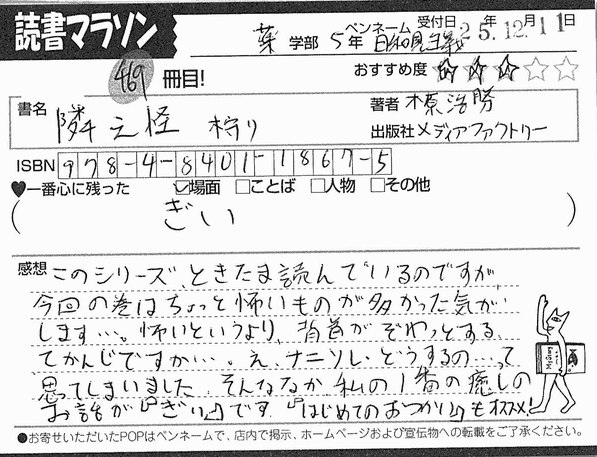 読書マラソン
薬 学部 5年 ペンネーム 日和見主義 受付日 25年12月11日
469 冊目! おすすめ度 ★★★☆☆
書名 隣之怪 狩り 著者 木原浩勝
出版社 メディアファクトリー
ISBN 978-4-8401-1867-5
♥一番心に残った ☑場面 □ことば □人物 □その他
( ぎい )
感想 このシリーズ、ときたま読んでいるのですが、
今回の巻はちょっと怖いものが多かった気が
します…。怖いというより、背首がぞわっとする
てかんじですか…。え、ナニソレ、どうするの…って
思ってしまいました。そんななか私の1番の癒しの
お話が「ぎい」です。「はじめてのおつかい」もオススメ!
●お寄せいただいたPOPはペンネームで、店内で掲示、ホームページおよび宣伝物への転載をご了承ください。